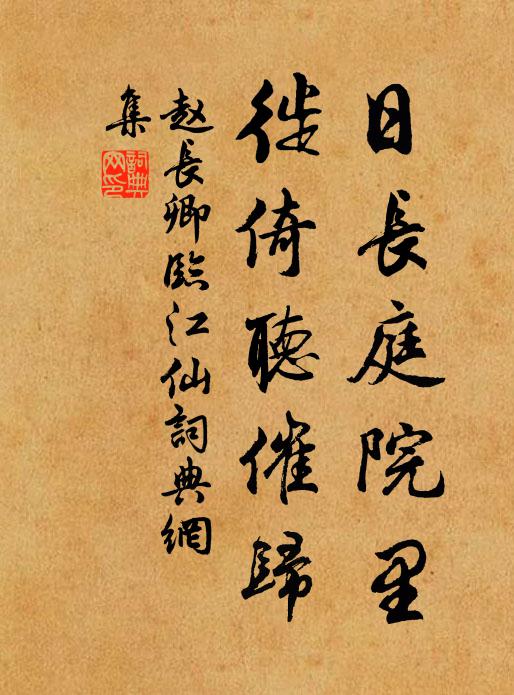 日長庭院里
徙倚聽催歸
赵長卿臨江仙詞典網
集
詞典
网印